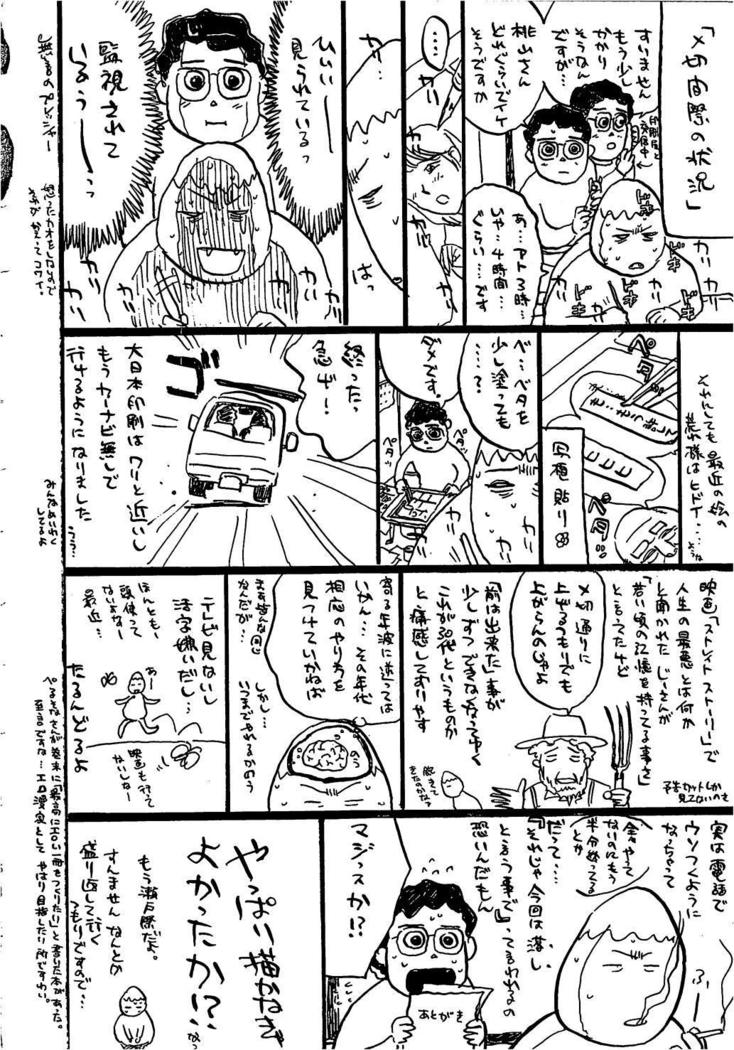 「〆切間際の状況」
すいません
もう少し
かかり
そうなん
ですが…
印刷屋と
交信中
桃山さん
どれぐらいでイケ
そうですか
ドキ
ドキ
ドキ
ドキ
カリ
カリ
カリ
あ…アト3時…
いや…4時間…
ぐらい…です
……
カリ
カリ
カリ…
はっ
ひぃぃー
見られているっ
監視されて
いるぅーーっ
カリ
カリ
カリ
カリ
無言のプレッシャー
それにしても最近の絵の
荒れ様はヒドイ…
ペタ
ペタッ
写植貼り
ベ…ベタを
少し塗っても
……?
ダメです。
ペタッ
ペタッ
カリ
カリ
終った、
急げー!
ゴー
大日本印刷はワリと近いし
もうカーナビ無しで
行けるようになりました
みんなめいわく
してるよ
映画「ストレイトストーリー」で
人生の最悪とは何か
と聞かれたじーさんが
「若い頃の記憶を持ってる事を」
と言ってたけど
予告カットしか
見てないのを
〆切通りに
上げるつもりでも
上がらんのじゃよ
「前は出来た」事が
少しずつできなくなってゆく
これが30代というものか
と痛感しておりやす
寄る年波に逆らっては
いかん…その年代
相応のやり方を
見つけていかねば
まぁ皆んな同じ
なんだが…
しかし…
いつまでやれるかのう
のう
テレビ見ないし
活字嫌いだし…
ほんともー
頭使って
ないよなー
最近…
あー
映画も行って
ないしなー
たるんどるよ
実は電話で
ウソつくように
なっちゃって
全々やって
ないのにもう
半分終ってる
とか
ふー
だって…
『それじゃ今回は落し、
と言う事で』って言われるの
恐いんだもん
マジっスか!?
あとがき
やっぱり描かなきゃ
よかったか!?
なっ
もう瀬戸際だよ。
すんませんなんとか
盛り返して行く
つもりですので…
ぺるそなさんが巻末に「最高にエロい一冊をつくりたい」と書いた本があった。
至言ですな…エロ漫家として やはり目指したい所ですわい。